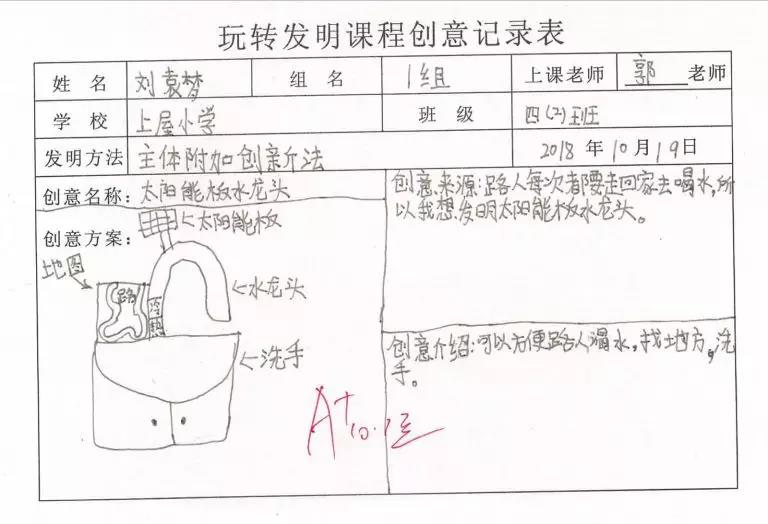 玩转发明课程创意记录表
姓 名 刘袁梦 组 名 1组 上课老师 郭 老师
学 校 上屋小学 班 级 四(2)班
发明方法 主体附加创新法 2018 年 10 月 19 日
创意名称: 太阳能板水龙头
创意方案:
←太阳能板
地图
路
冷
热
←水龙头
←洗手
创意来源:路人每次都要走回家去喝水,所
以我想发明太阳能板水龙头。
创意介绍:可以方便路人喝水,找地方,洗
手。
A+